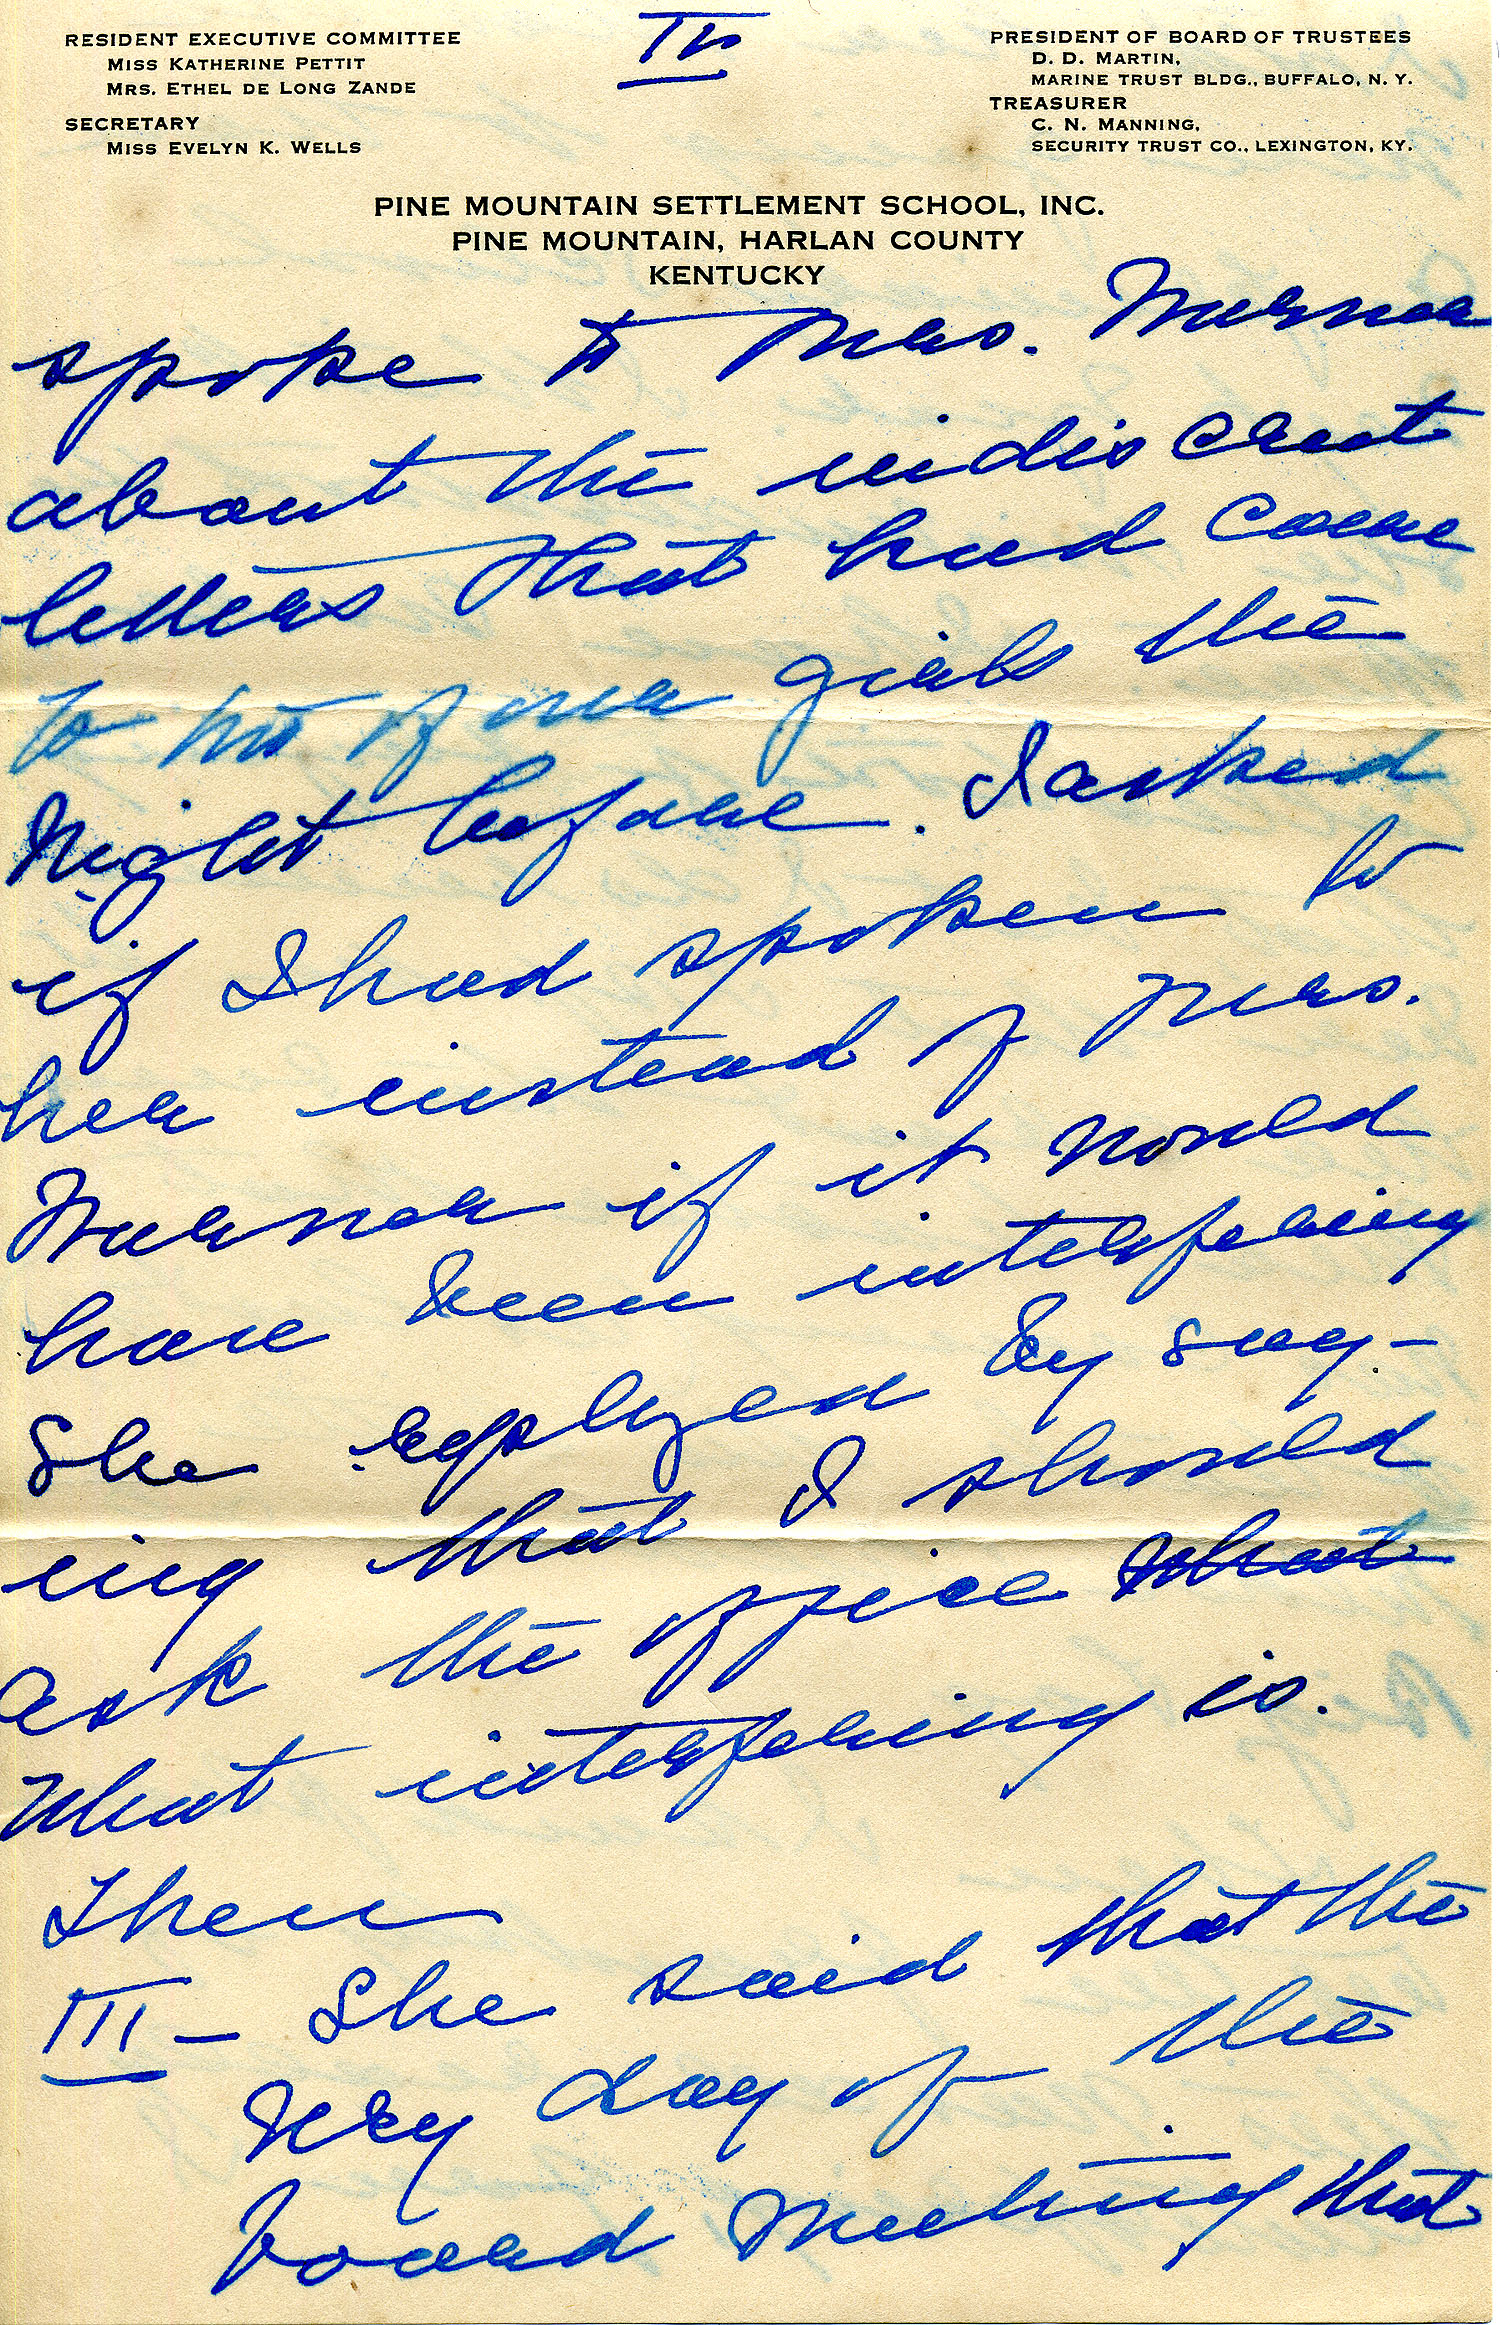 IV
RESIDENT EXECUTIVE COMMITTEE
MISS KATHERINE PETTIT
MRS. ETHEL DE LONG ZANDE
SECRETARY
MISS EVELYN K. WELLS
PRESIDENT OF BOARD OF TRUSTEES
D. D. MARTIN,
MARINE TRUST BLDG., BUFFALO, N. Y.
TREASURER
C. N. MANNING,
SECURITY TRUST CO., LEXINGTON, KY.
PINE MOUNTAIN SETTLEMENT SCHOOL, INC.
PINE MOUNTAIN, HARLAN COUNTY
KENTUCKY
spoke to Mrs.
about the indiscreet
letters that had come
to two of our girls the
night before. I asked
if I had spoken to
her instead of Mrs.
if it would
have been interfering
She replyed by say-
ing that I should
ask the office what
what interfering is.
Then
III - She said that the
very day of the
board meeting that